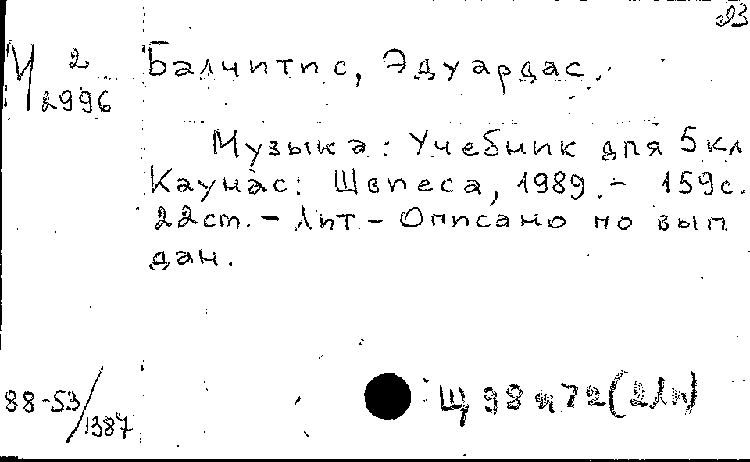 23
М 2 Балчитис, Эдуардас.
2996
Музыка: Учебник для 5 кл
Каунас: Швиеса, 1989.- 159с.
22см. - Лит - Описано по вып
дан.
88-53/1387
Щ 98 я 72 (2Ли)